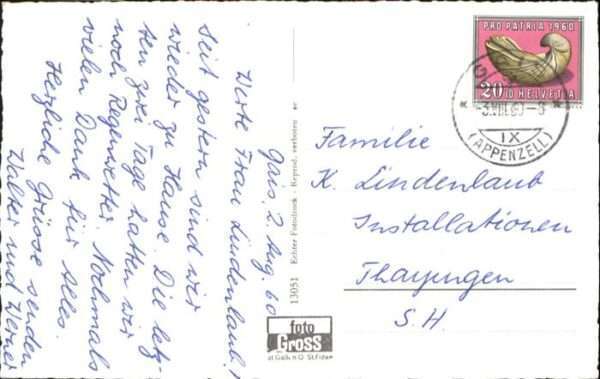 Gais, 2. Aug. 60
Werte Frau Lindenlaub!
Seit gestern sind wir
wieder zu Hause. Die letz-
ten zwei Tage hatten wir
noch Regenwetter. Nochmals
vielen Dank für Alles.
Herzliche Grüsse senden
Walter und Werner
13051 Echter Fotodruck - Reprod. verboten
foto
Gross
St. Gallen O St. Fiden
PRO PATRIA 1960
20+10 HELVETIA
-3.VIII.60-8
IX
(APPENZELL)
Familie
K. Lindenlaub
Installationen
Thayngen
S.H